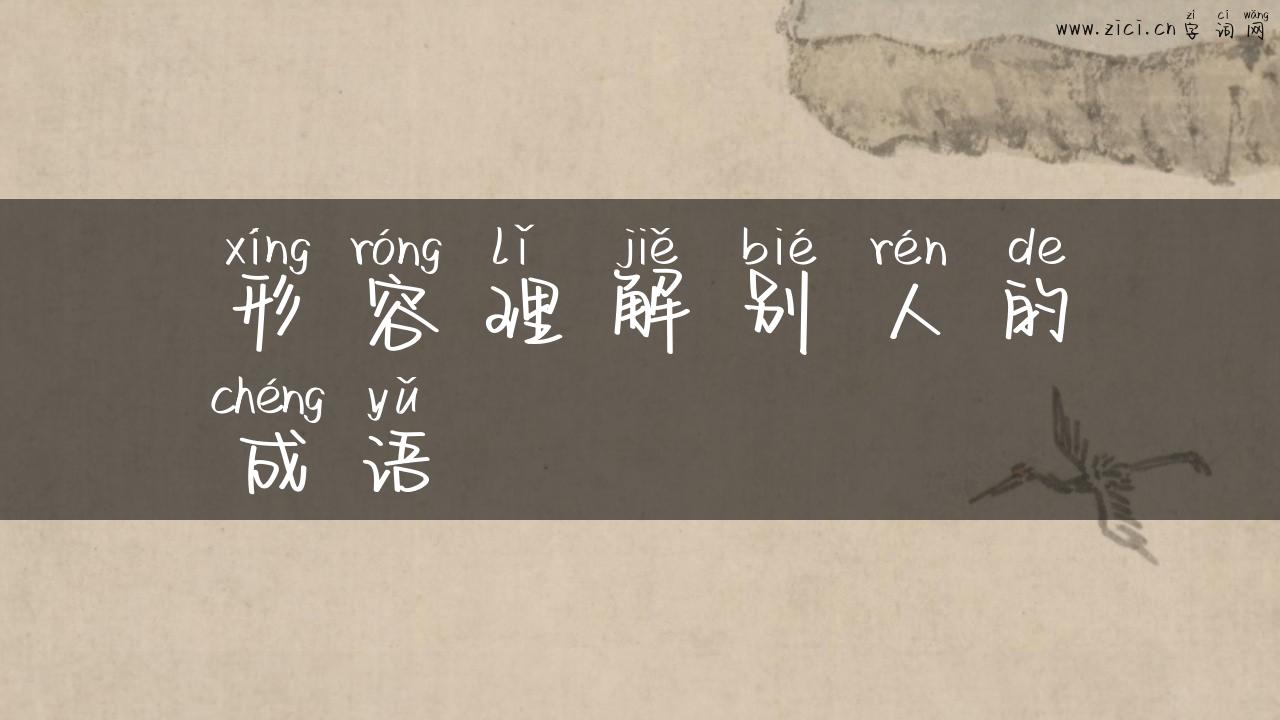 zì cí wǎng
www.zici.cn 字词网
xíng róng lǐ jiě bié rén de
形容理解别人的
chéng yǔ
成语